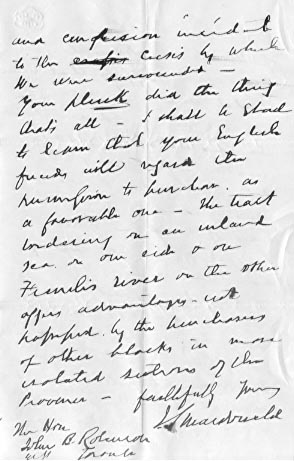 and confusion incident
to the crisis by which
we were surrounded –
Your pluck did the thing
that's all – I shall be glad
to learn that your English
friends will regard the
permission to purchase as
a favorable one – The tract
bordering on an inland
sea on one side & on
river on the other
offers advantages not
possessed by the purchasers
of other blocks in more
isolated sections of the
Province – faithfully Yours
The Hon
John B. Robinson
Toronto